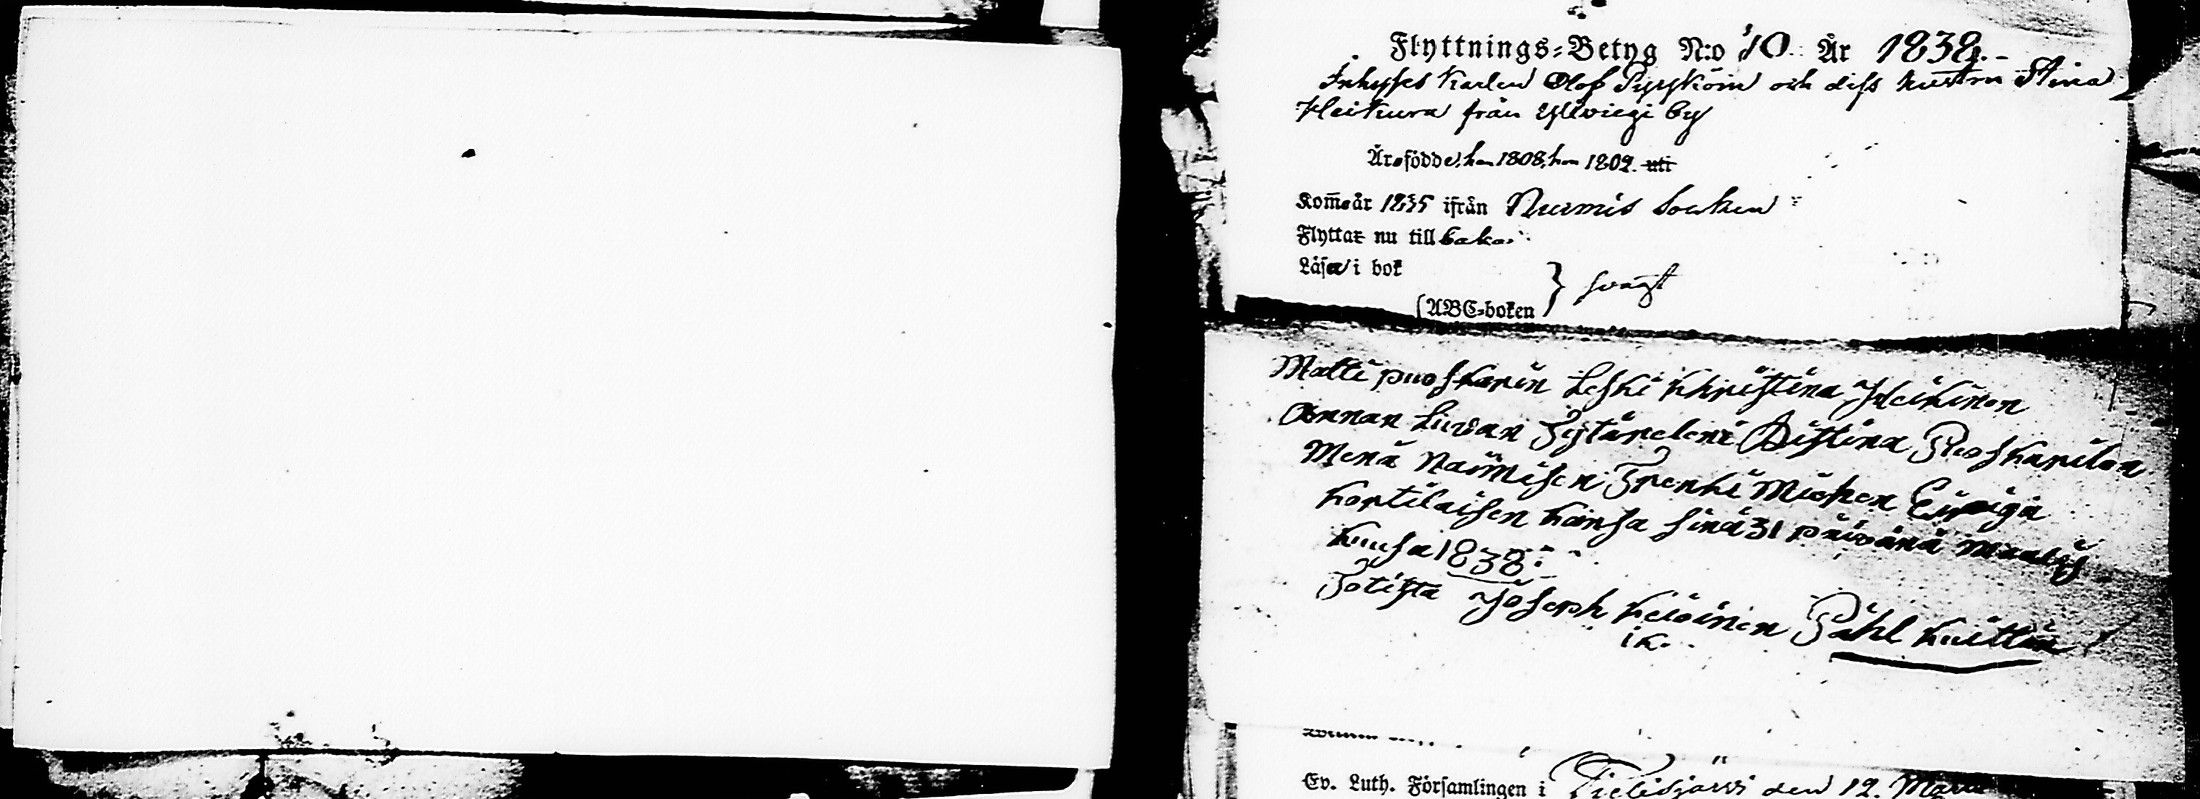 Flyttnings-Betyg N:o 10. År 1838.
Inhyses Karlen Olof Pyykköin och dess hustru Stina
Heikura från Ylöwiegi by
Äro födde, han 1808, hon 1802. uti
Kom̄o år 1835 ifrån Nurmis Socken
Flytta nu tillbaka.
Läsa i bok
(ABC-boken } svagt
Matti puoskarin Leski Khristina Heikinen
Annan Luvan Tytärelleni Kistina Puoskarilan
Menä Naimisen Trenki Miehen
kortilaisen kansa sinä 31 päivänä maalis
kuusa 1838:
Totista Joseph Keiöinen Påhl
Ev. Luth. Församlingen i Pielisjärvi den 12. Martii